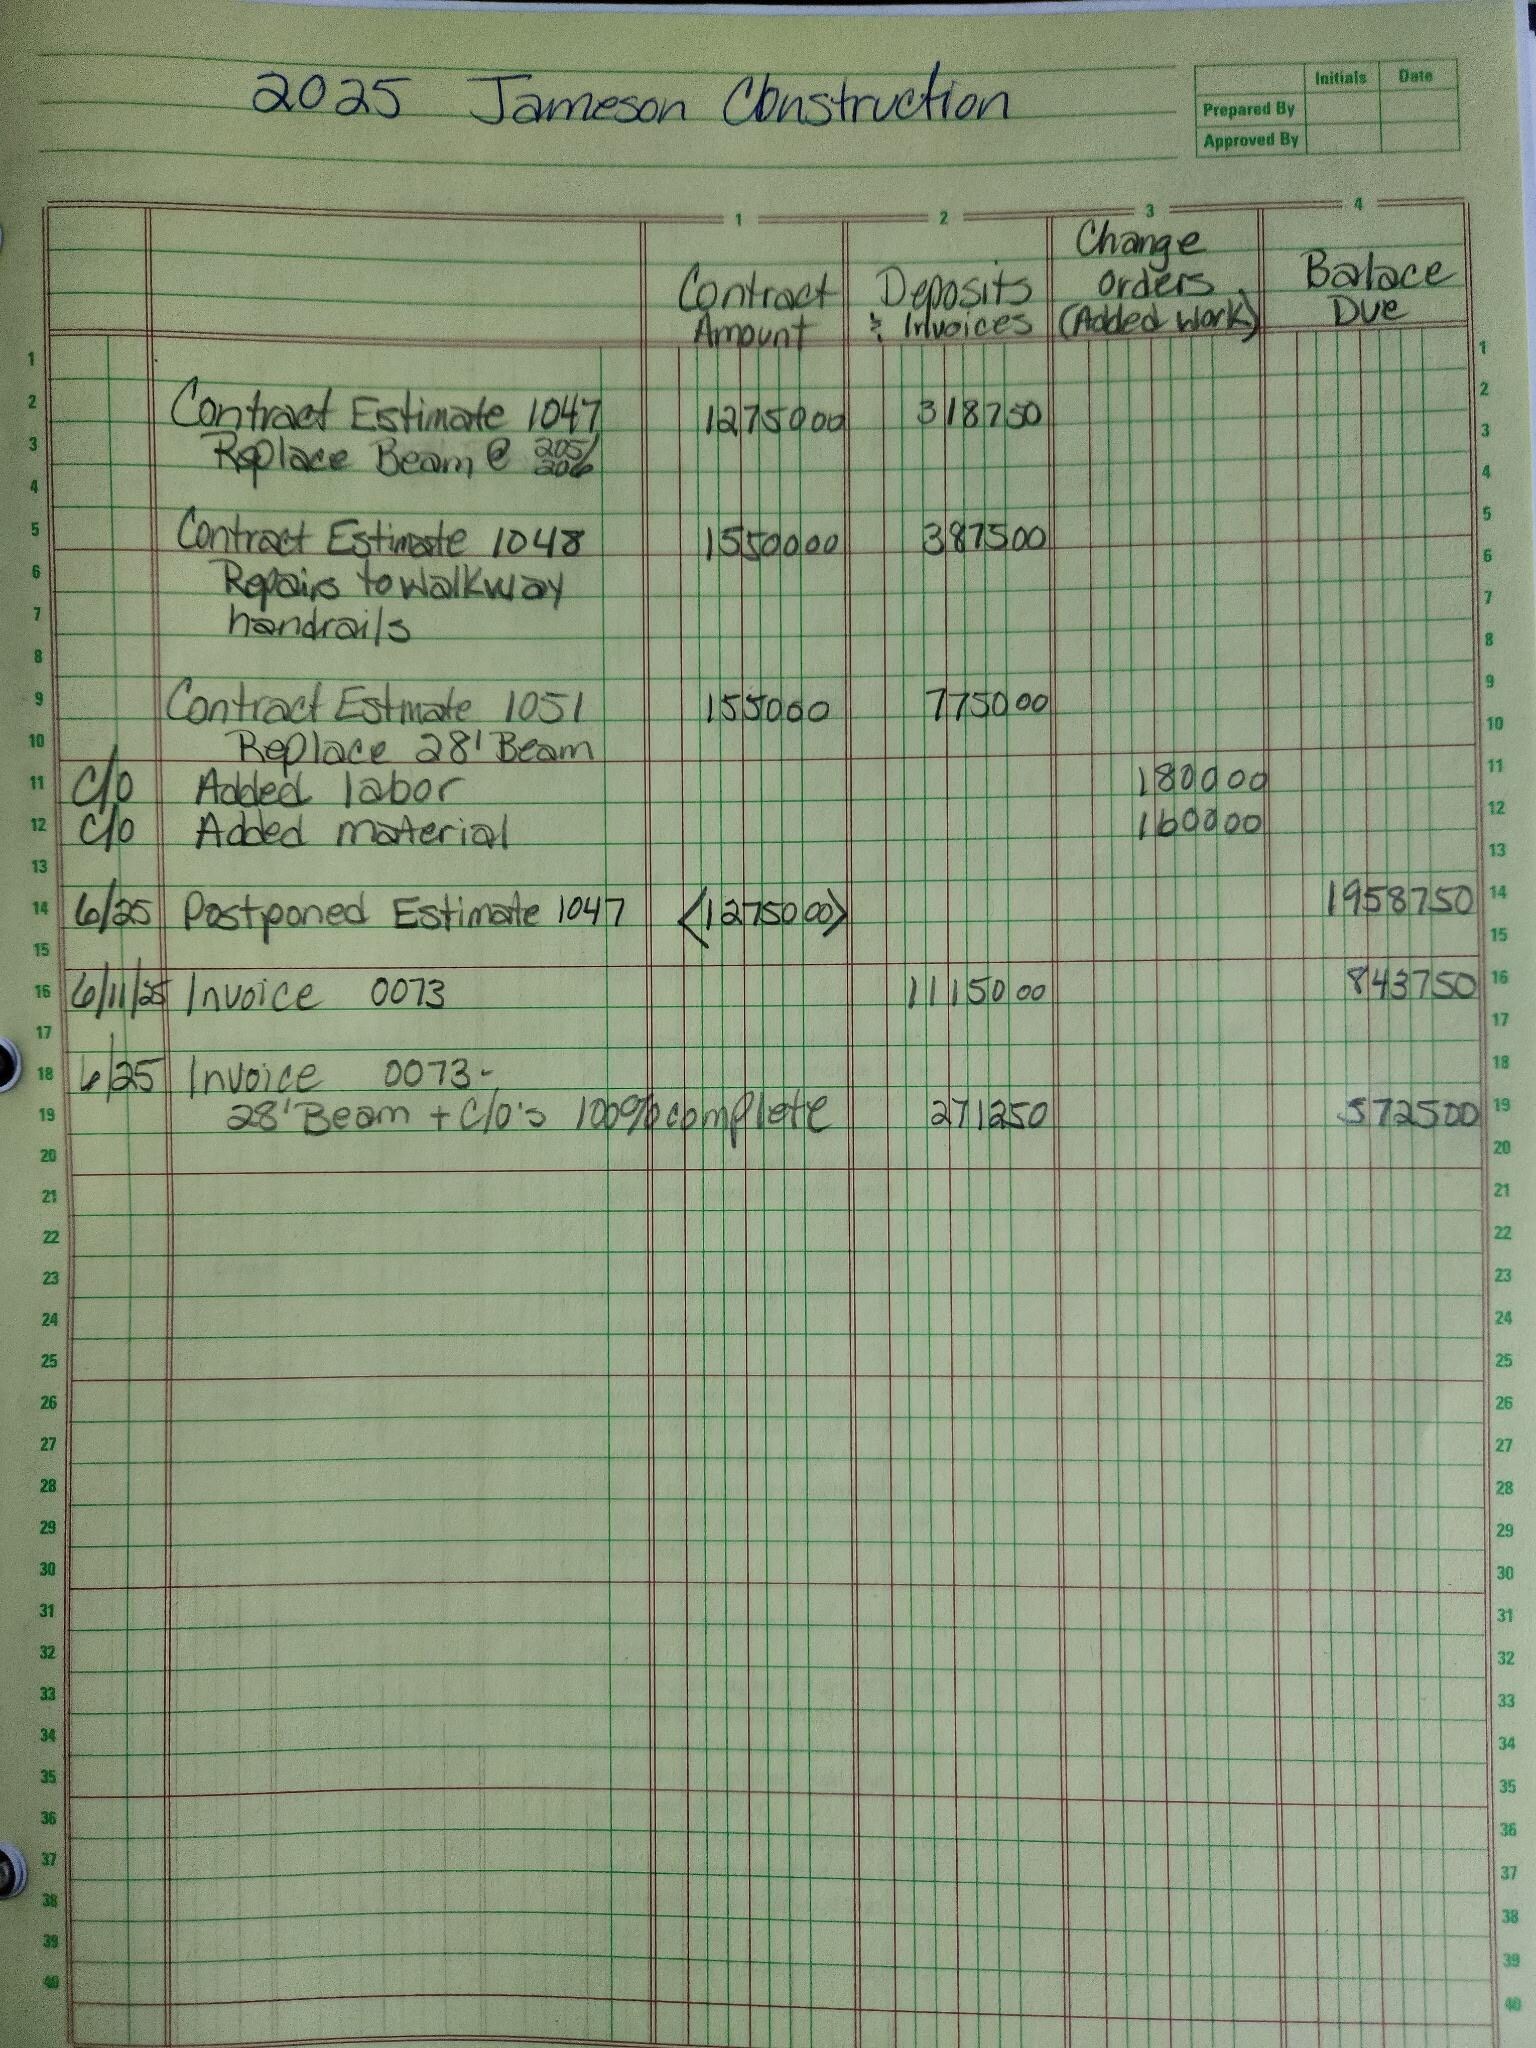 2025 Jameson Construction
Initials Date
Prepared By
Approved By
1 2 3 4
Contract Amount Deposits & Invoices Change Orders (Added Work) Balace Due
1 1
2 Contract Estimate 1047 1275000 318750 2
3 Replace Beam @ 205/206 3
4 4
5 Contract Estimate 1048 1550000 387500 5
6 Repairs to Walkway 6
7 handrails 7
8 8
9 Contract Estmate 1051 155000 775000 9
10 Replace 28' Beam 10
11 C/O Added labor 180000 11
12 C/O Added material 160000 12
13 13
14 6/25 Postponed Estimate 1047 <1275000> 1958750 14
15 15
16 6/11/25 Invoice 0073 1115000 843750 16
17 17
18 6/25 Invoice 0073- 18
19 28' Beam + C/O's 100% complete 271250 572500 19
20 20
21 21
22 22
23 23
24 24
25 25
26 26
27 27
28 28
29 29
30 30
31 31
32 32
33 33
34 34
35 35
36 36
37 37
38 38
39 39
40 40